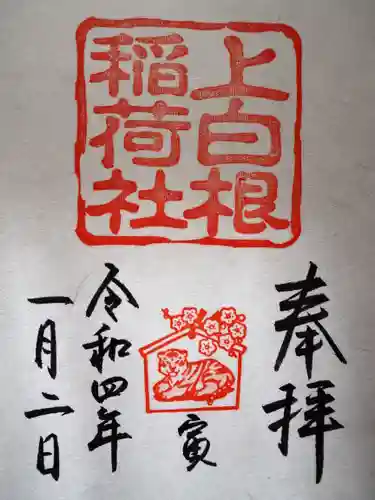 奉拝
上白根
稲荷社
寅
令和四年
一月二日